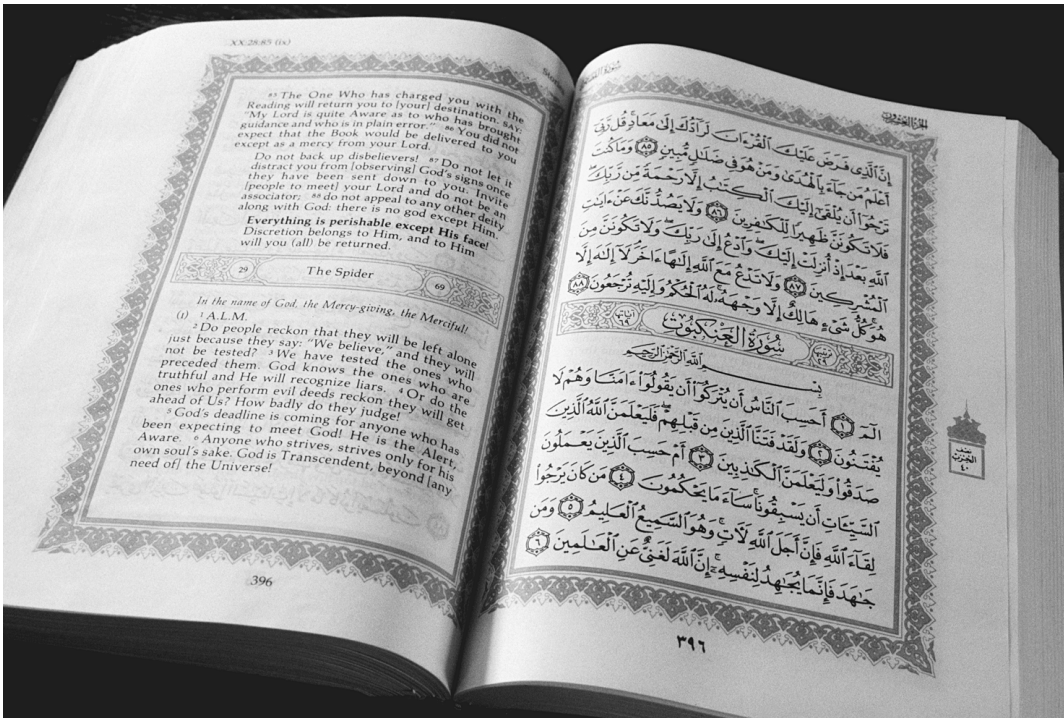 XX:28:85 (ix)
85 The One Who has charged you with the
Reading will return you to [your] destination. SAY:
"My Lord is quite Aware as to who has brought
guidance and who is in plain error." 86 You did not
expect that the Book would be delivered to you
except as a mercy from your Lord.
Do not back up disbelievers! 87 Do not let it
distract you from [observing] God's signs once
they have been sent down to you. Invite
[people to meet] your Lord and do not be an
associator; 88 do not appeal to any other deity
along with God: there is no god except Him.
Everything is perishable except His face!
Discretion belongs to Him, and to Him
will you (all) be returned.
29 The Spider 69
In the name of God, the Mercy-giving, the Merciful!
(i) 1 A.L.M.
2 Do people reckon that they will be left alone
just because they say: "We believe," and they will
not be tested? 3 We have tested the ones who
preceded them. God knows the ones who are
truthful and He will recognize liars. 4 Or do the
ones who perform evil deeds reckon they will get
ahead of Us? How badly do they judge!
5 God's deadline is coming for anyone who has
been expecting to meet God! He is the Alert,
Aware. 6 Anyone who strives, strives only for his
own soul's sake. God is Transcendent, beyond [any
need of] the Universe!
396
الجزء العشرون
إِنَّ ٱلَّذِى فَرَضَ عَلَيْكَ ٱلْقُرْءَانَ لَرَآدُّكَ إِلَىٰ مَعَادٍ قُل رَّبِّىٓ
أَعْلَمُ مَن جَآءَ بِٱلْهُدَىٰ وَمَنْ هُوَ فِى ضَلَٰلٍ مُّبِينٍ ٨٥ وَمَا كُنتَ
تَرْجُوٓا۟ أَن يُلْقَىٰٓ إِلَيْكَ ٱلْكِتَٰبُ إِلَّا رَحْمَةً مِّن رَّبِّكَ
فَلَا تَكُونَنَّ ظَهِيرًا لِّلْكَٰفِرِينَ ٨٦ وَلَا يَصُدُّنَّكَ عَنْ ءَايَٰتِ
ٱللَّهِ بَعْدَ إِذْ أُنزِلَتْ إِلَيْكَ وَٱدْعُ إِلَىٰ رَبِّكَ وَلَا تَكُونَنَّ مِنَ
ٱلْمُشْرِكِينَ ٨٧ وَلَا تَدْعُ مَعَ ٱللَّهِ إِلَٰهًا ءَاخَرَ لَآ إِلَٰهَ إِلَّا
هُوَ كُلُّ شَىْءٍ هَالِكٌ إِلَّا وَجْهَهُۥ لَهُ ٱلْحُكْمُ وَإِلَيْهِ تُرْجَعُونَ ٨٨
ترتيبها ٢٩ سُورَةُ ٱلْعَنكَبُوتِ آياتها ٦٩
بِسْمِ ٱللَّهِ ٱلرَّحْمَٰنِ ٱلرَّحِيمِ
الٓمٓ ١ أَحَسِبَ ٱلنَّاسُ أَن يُتْرَكُوٓا۟ أَن يَقُولُوٓا۟ ءَامَنَّا وَهُمْ لَا
يُفْتَنُونَ ٢ وَلَقَدْ فَتَنَّا ٱلَّذِينَ مِن قَبْلِهِمْ فَلَيَعْلَمَنَّ ٱللَّهُ ٱلَّذِينَ
صَدَقُوا۟ وَلَيَعْلَمَنَّ ٱلْكَٰذِبِينَ ٣ أَمْ حَسِبَ ٱلَّذِينَ يَعْمَلُونَ
ٱلسَّيِّـَٔاتِ أَن يَسْبِقُونَا سَآءَ مَا يَحْكُمُونَ ٤ مَن كَانَ يَرْجُوا۟
لِقَآءَ ٱللَّهِ فَإِنَّ أَجَلَ ٱللَّهِ لَـَٔاتٍ وَهُوَ ٱلسَّمِيعُ ٱلْعَلِيمُ ٥ وَمَن
جَٰهَدَ فَإِنَّمَا يُجَٰهِدُ لِنَفْسِهِۦٓ إِنَّ ٱللَّهَ لَغَنِىٌّ عَنِ ٱلْعَٰلَمِينَ ٦
نصف
الحزب
٤٠
٣٩٦